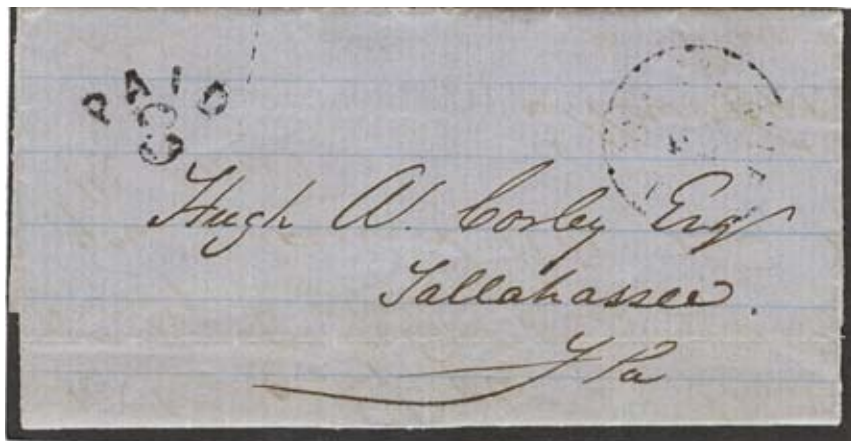 PAID
3
Hugh W. Corley Esq
Tallahassee.